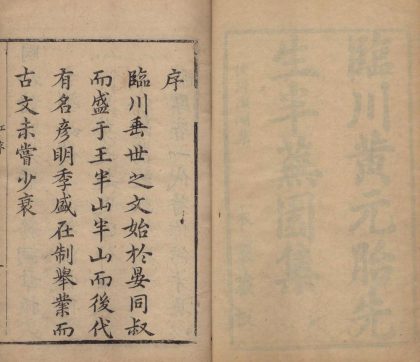 臨川黃元胎先
生半蕪園集
序
臨川垂世之文始於晏同叔
而盛于王半山半山而後代
有名彥明季盛在制舉業而
古文未嘗少衰